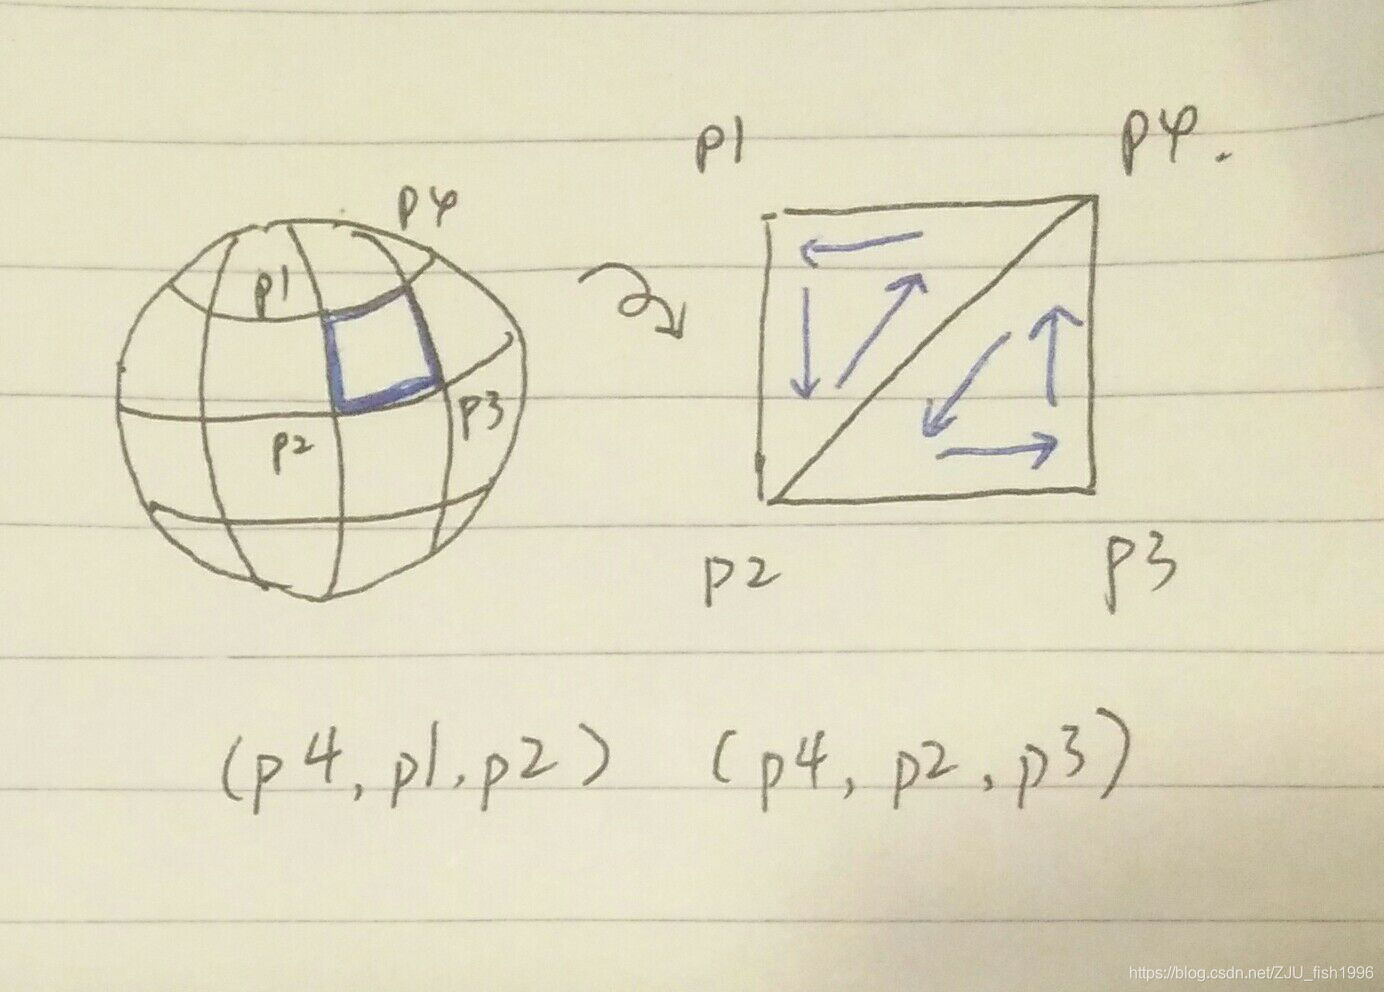 p1 p4.
p4
p1
p3
p2
p2 p3
(p4, p1, p2) (p4, p2, p3)
https://blog.csdn.net/ZJU_fish1996